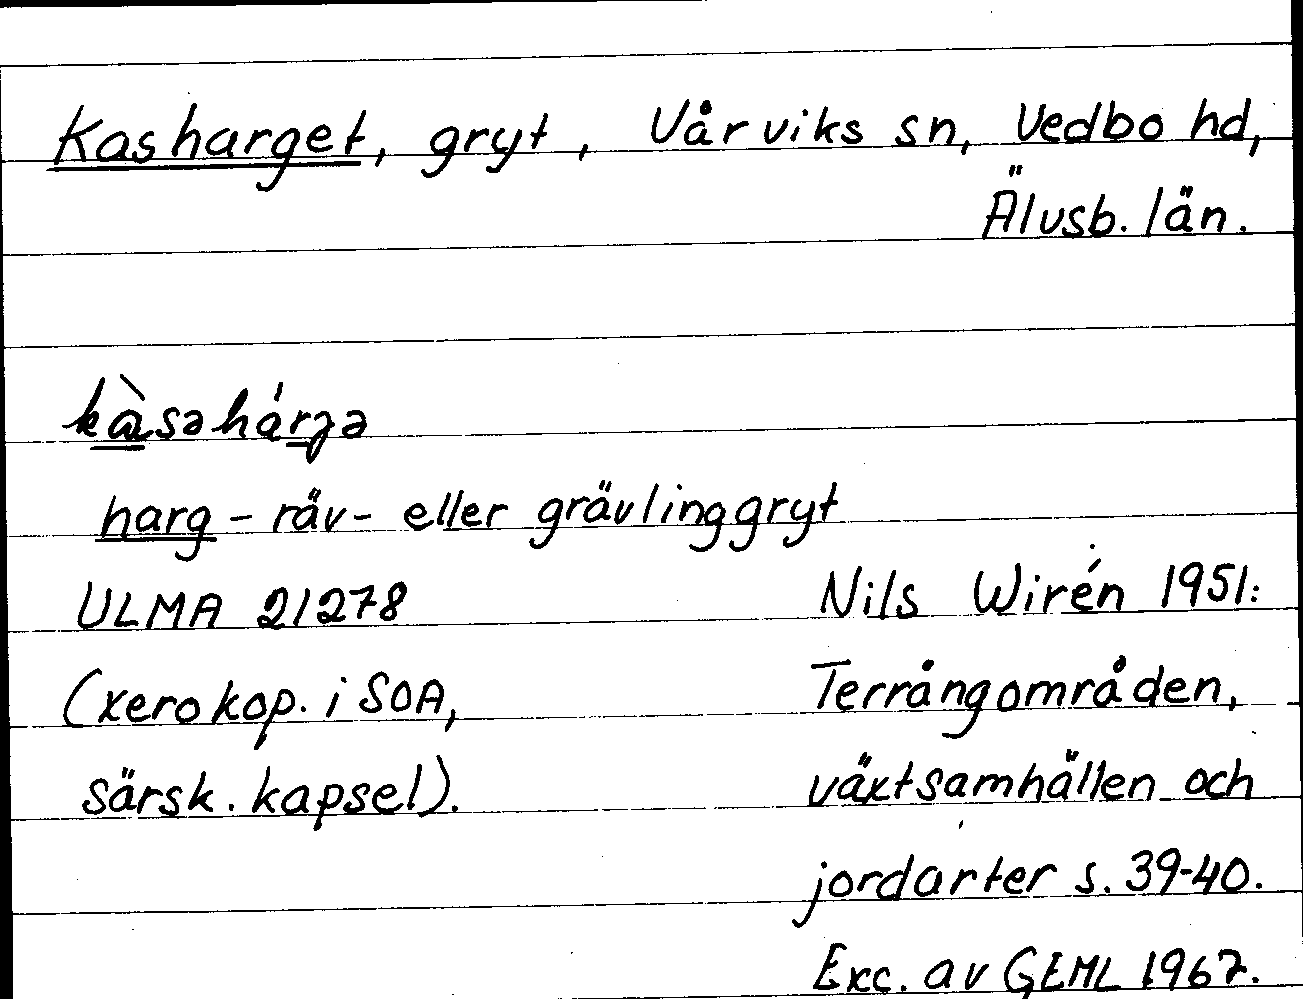 Kasharget, gryt, Vårviks sn, Vedbo hd,
Älvsb. län.
kàsəhárgə
harg - räv- eller grävlinggryt
ULMA 21278
Nils Wirén 1951:
(xerokop. i SOA,
Terrängområden,
särsk. kapsel).
växtsamhällen och
jordarter s. 39-40.
Exc. av GEML 1967.